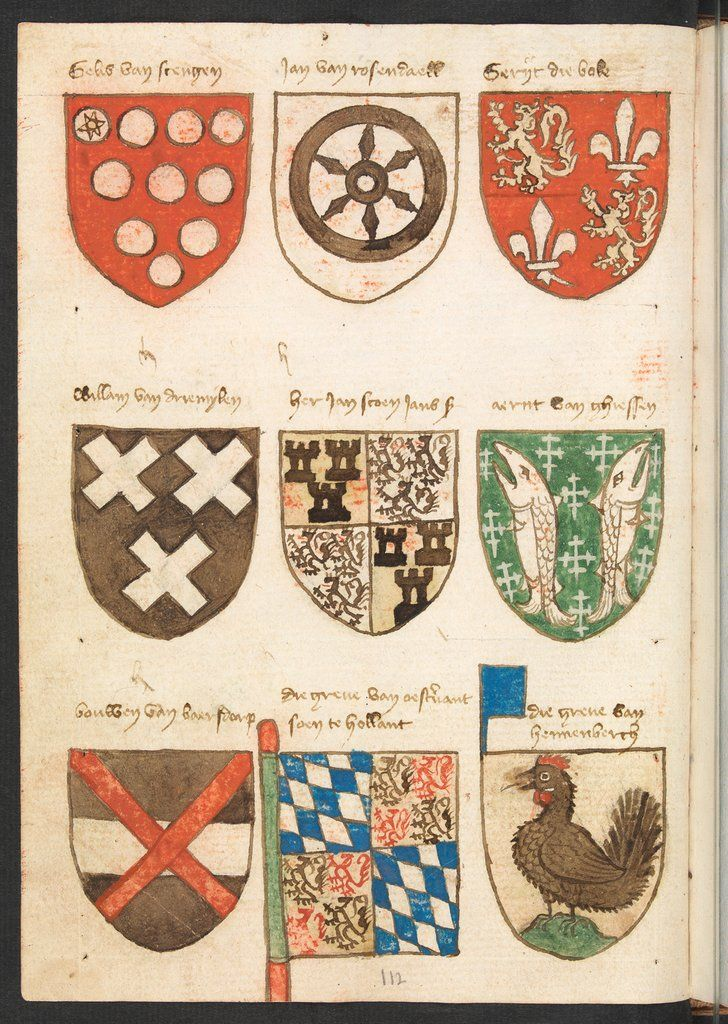 Gelis van stengen
Jan van rosendaell
Gerijt die bole
Willam van driemylen
her Jan soen Jans
aernt van ghiessen
bouwen van baersdorp
die greve van oestvant
soen te hollant
die greve van
hennenberch
112